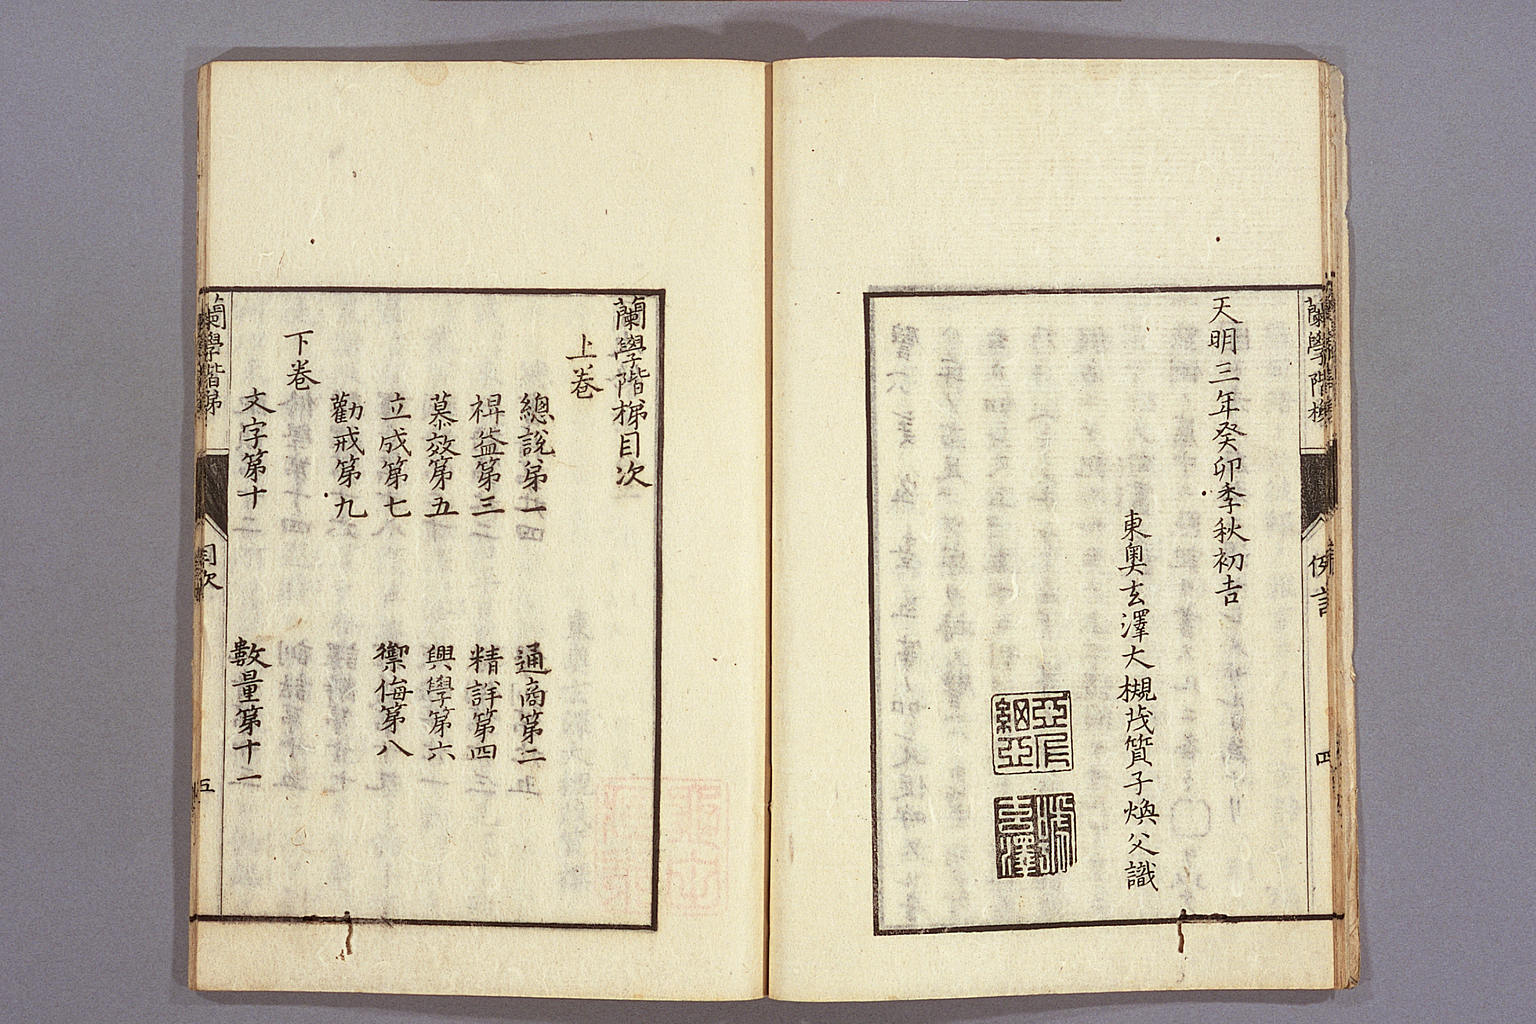 蘭學階梯
例言
四
天明三年癸卯季秋初吉
東奧玄澤大槻茂質子煥父識
蘭學階梯目次
上巻
總說第一
通商第二
裨益第三
精詳第四
慕效第五
興學第六
立成第七
禦侮第八
勸戒第九
下巻
文字第十
數量第十一
蘭學階梯
目次
五